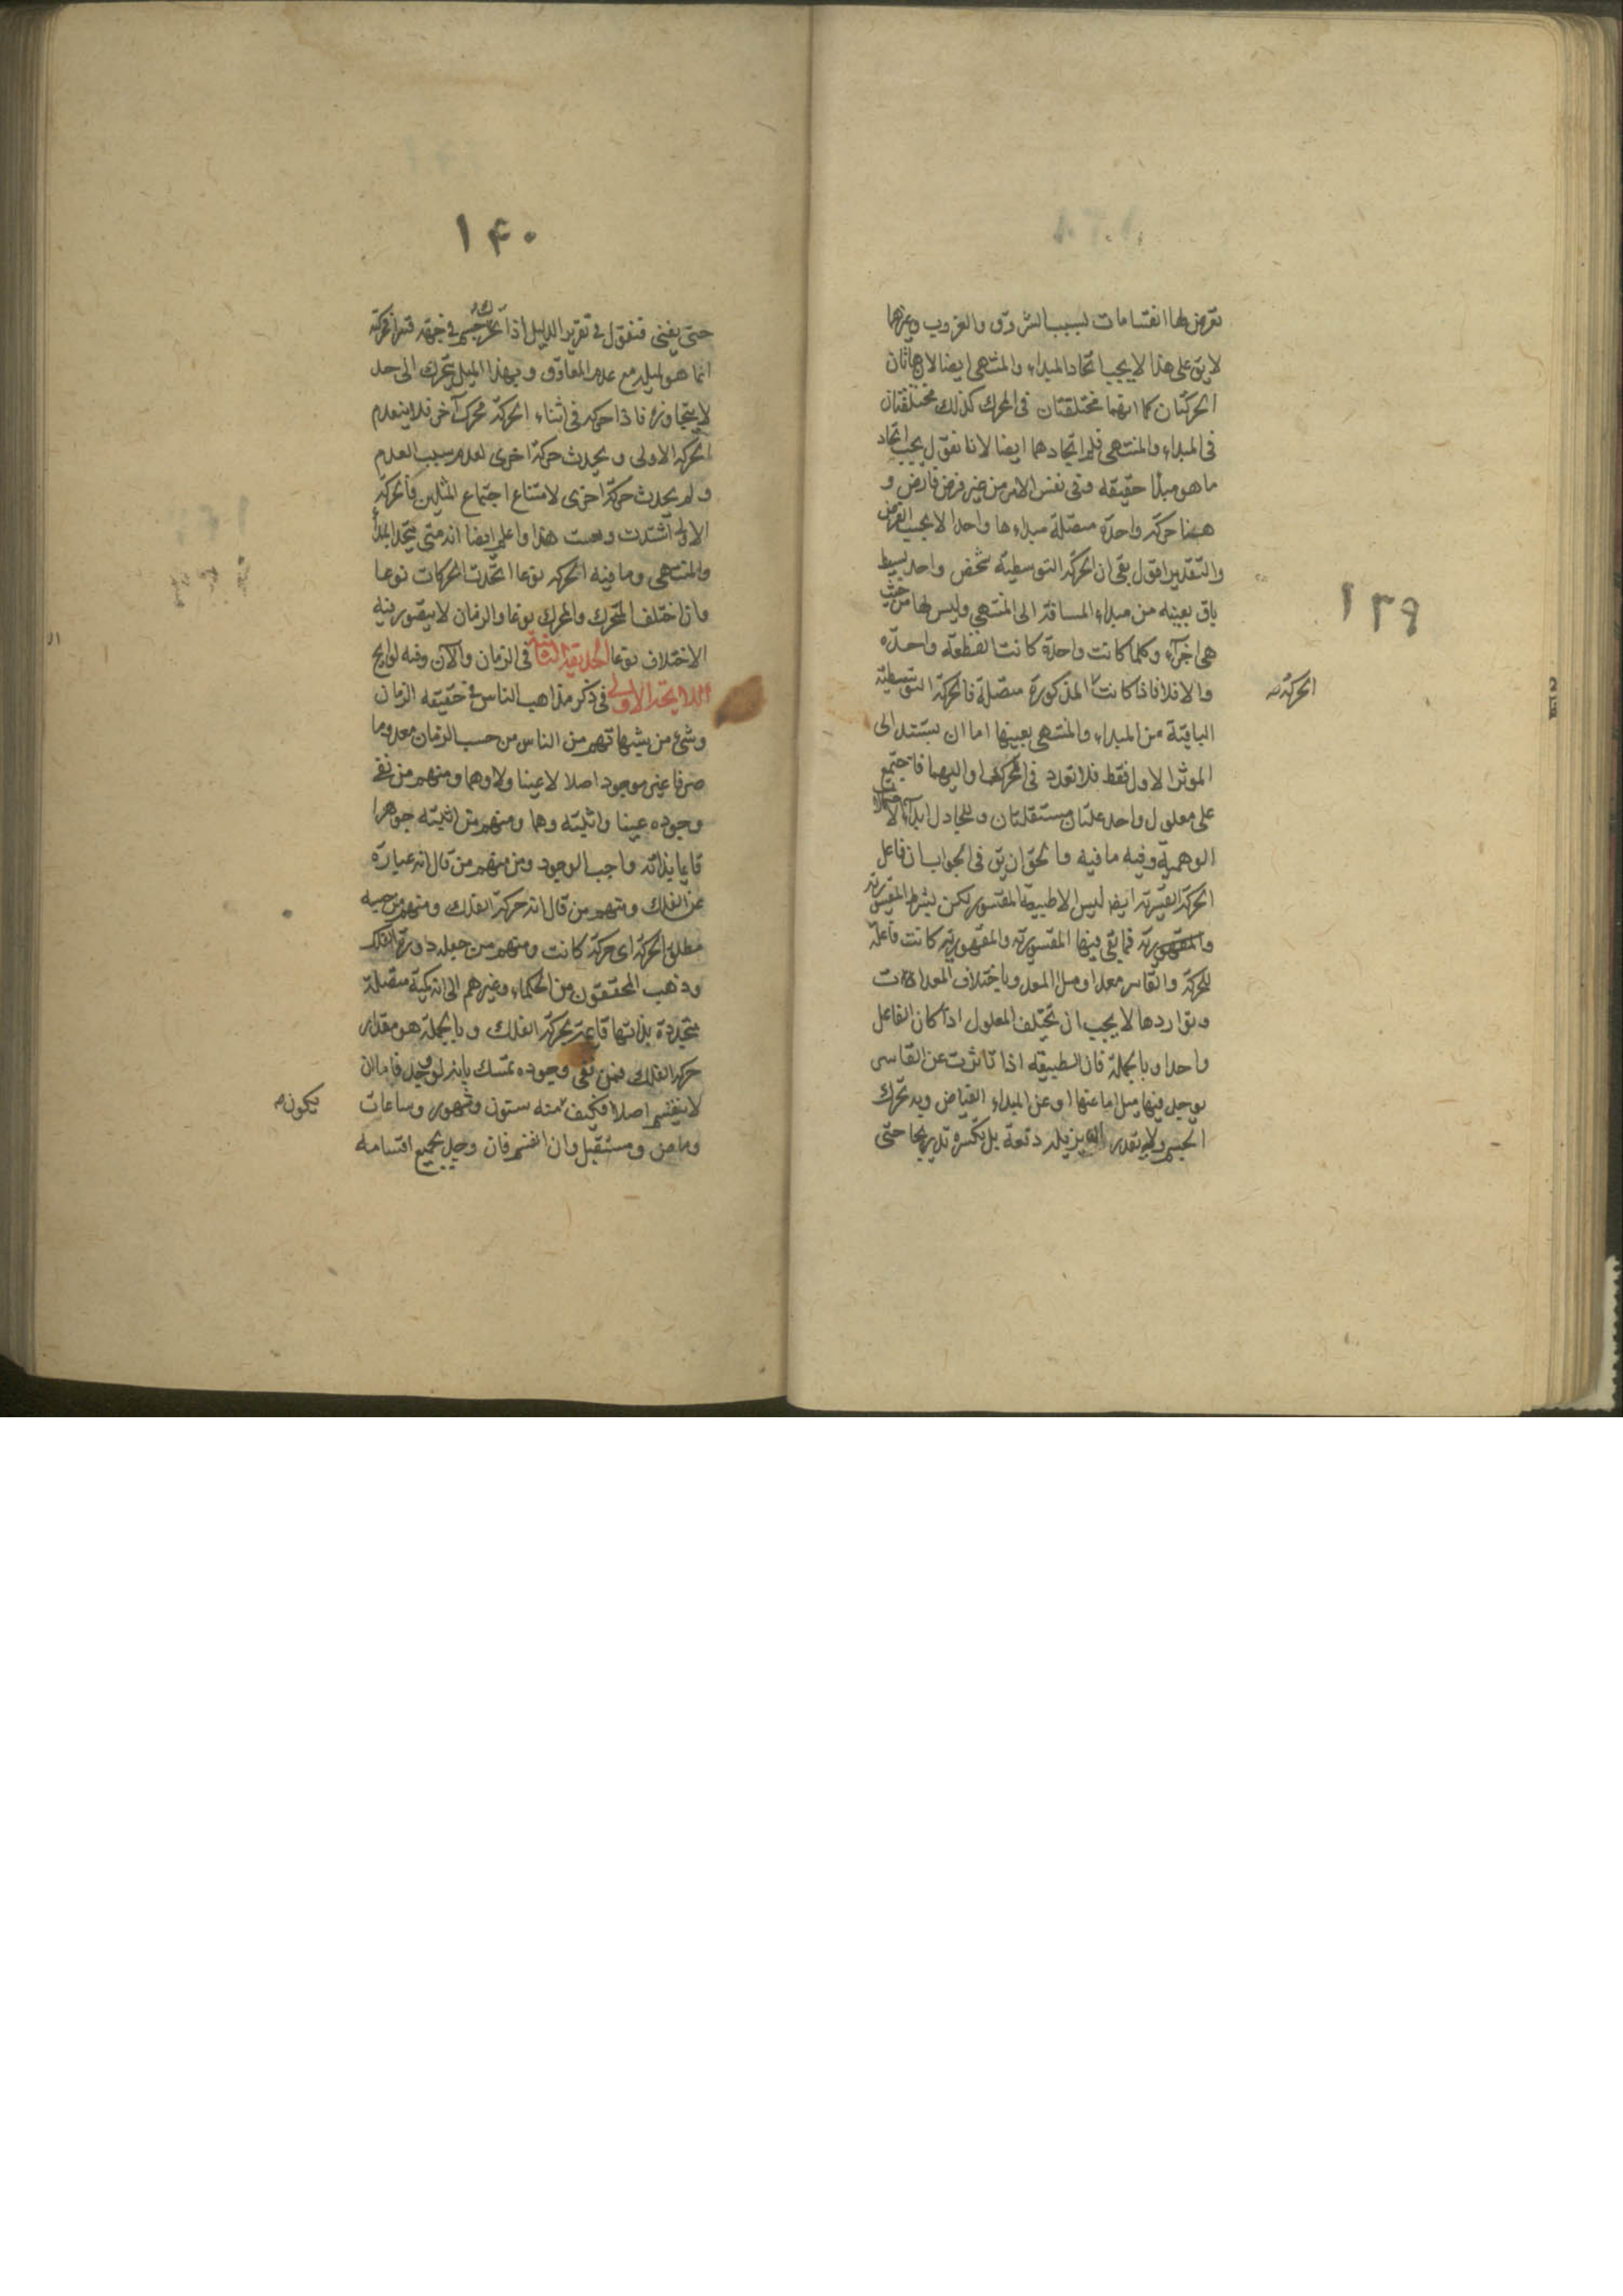 ١٣٩
تعرض لها انقسامات بسبب الشروق والغروب وغيرها
لا يق على هذا لا يجب اتحاد المبداء والمنتهى ايضا لان هاتان
الحركتان كما انهما مختلفتان فى المحرك كذلك مختلفتان
فى المبداء والمنتهى فلم اتحادهما ايضا لانا نقول يجب اتحاد
ما هو مبدأ حقيقه وفى نفس الامر من غير فرض فارض و
ههنا حركة واحدة متصلة مبداءها واحد الا بحسب الفرض
والتقدير اقول بقى ان الحركة التوسطية شخص واحد بسيط
باق بعينه من مبداء المسافة الى المنتهى وليس لها من حيث
هى اجزاء وكلما كانت واحدة كانت القطعه واحدة
والا فلا فاذا كانت المذكورة متصلة فالحركة التوسطية
الحركة
الباقية من المبداء والمنتهى بعينها اما ان يستند الى
الموثر الاول فقط فلا تعدد فى المحرك او اليهما فاجتمع
على معلول واحد علتان مستقلتان وللمجادل ابداء
الوهمية وفيه ما فيه والحق ان يق فى الجواب ان فاعل
الحركة القسرية ايضا ليس الا طبيعة المقسور لكن بشرط المقسورية
والمقهورية فما بقى فيها المقسورية والمقهورية كانت فاعلة
للحركة والقاسر معدا وميل المعد وباختلاف المعدات
وتواردها لا يجب ان يختلف المعلول اذا كان الفاعل
واحدا وبالجملة فان الطبيعة اذا تاثرت عن القاسر
يوجد فيها ميل اما عنها او عن المبداء الفياض وبه تحرك
الجسم ولا يقدر ان يزيله دفعة بل يكسره تدريجا حتى
١۴٠
حتى يفنى فنقول فى تقرير الدليل اذا تحرك جسم فى جهة قسرا فحركته
انما هو لميله مع عدم المعاوق وبهذا الميل يتحرك الى حد
لا يتجاوزه فاذا حركه فى اثناء الحركة محرك آخر فلا ينعدم
الحركة الاولى ويحدث حركة اخرى لعدم سبب العدم
ولم يحدث حركة اخرى لامتناع اجتماع المثلين فالحركة
الاولى اشتدت هذا واعلم ايضا انه متى يتحد المبدأ
والمنتهى وما فيه الحركه نوعا اتحدت الحركات نوعا
وان اختلف المتحرك والمحرك نوعا والزمان لا يتصور فيه
الاختلاف نوعا الحديقة الثانية فى الزمان والآن وفيه لوايح
اللايحة الاولى فى ذكر مذاهب الناس فى حقيقه الزمان
وشئ من شبهاتهم من الناس من حسب الزمان معدوما
صرفا غير موجود اصلا لا عينا ولا وهما ومنهم من نفى
وجوده عينا واثبته وهما ومنهم من اثبته جوهرا
قايما بذاته واجب الوجود ومنهم من قال انه عبارة
عن الفلك ومنهم من قال انه حركة الفلك ومنهم من حسبه
مطلق الحركة اى حركة كانت ومنهم من جعله دورة الفلك
وذهب المحققون من الحكماء وغيرهم الى انه كمية متصلة
متجددة بذاتها قايمة بحركة الفلك وبالجملة هو مقدار
حركة الفلك فمن نفى وجوده تمسك بانه لو وجد فاما ان
لا ينقسم اصلا فكيف منه سنون وشهور وساعات
يكون
وماض ومستقبل وان انقسم فان وجد بجميع اقسامه